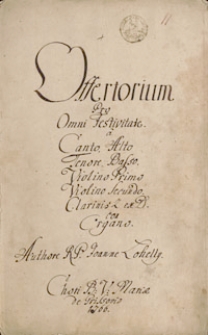 Offertorium
Pro
Omni Festivitate.
a
Canto, Alto
Tenore, Basso,
Violino Primo
Violino Secundo,
Clarinis 2. ex D.
con
Organo.
Authore R. P. Joanne Lohelly.
Chori B. V. Mariæ
de
1766.